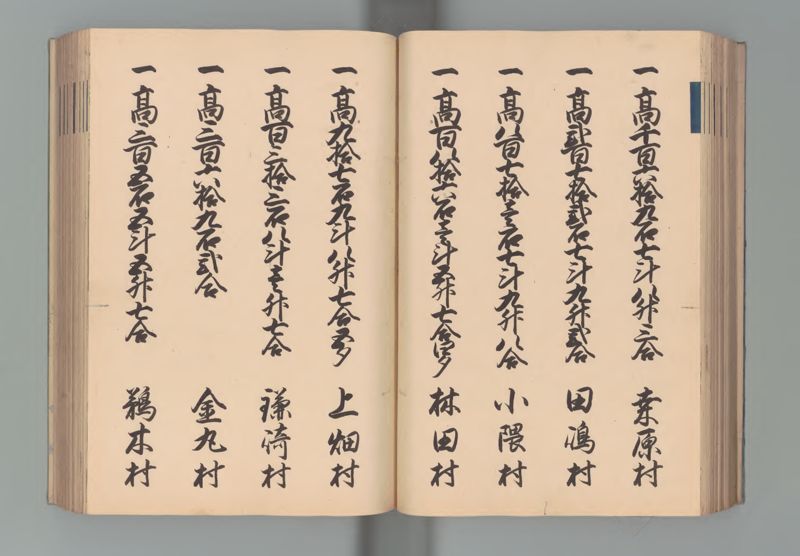 一高千百六拾九石七斗八升三合 桒原村
一高弐百七拾弐石七斗九升弐合 田嶋村
一高八百七拾壱石七斗九升八合 小隈村
一高百八拾六石壱斗五升七合 林田村
一高九拾七石九斗八升七合五夕 上畑村
一高百三拾三石八斗壱升七合 崎村
一高三百六拾九石弐合 金丸村
一高三百五石五斗五升七合 鵜木村